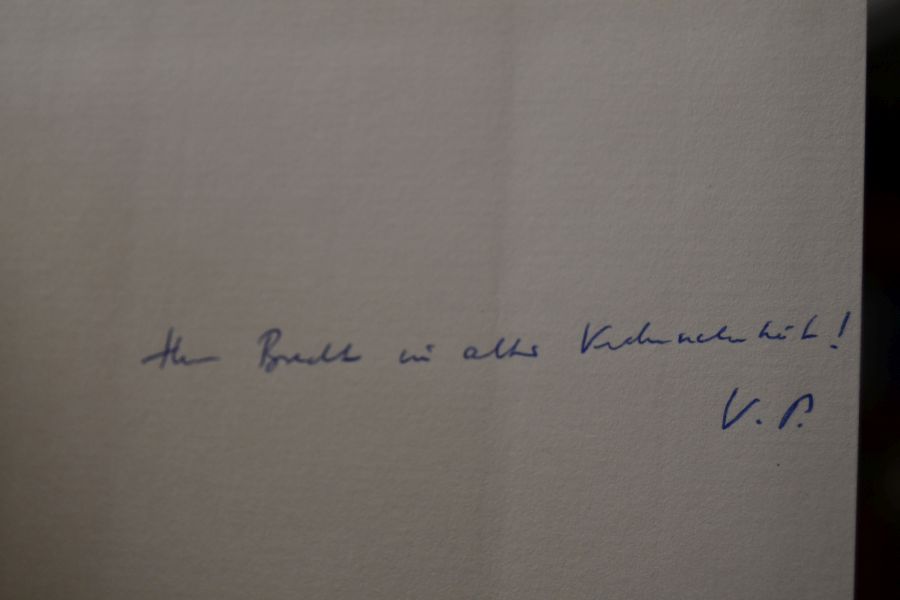 Herrn Brecht in alter Verbundenheit!
V. P.